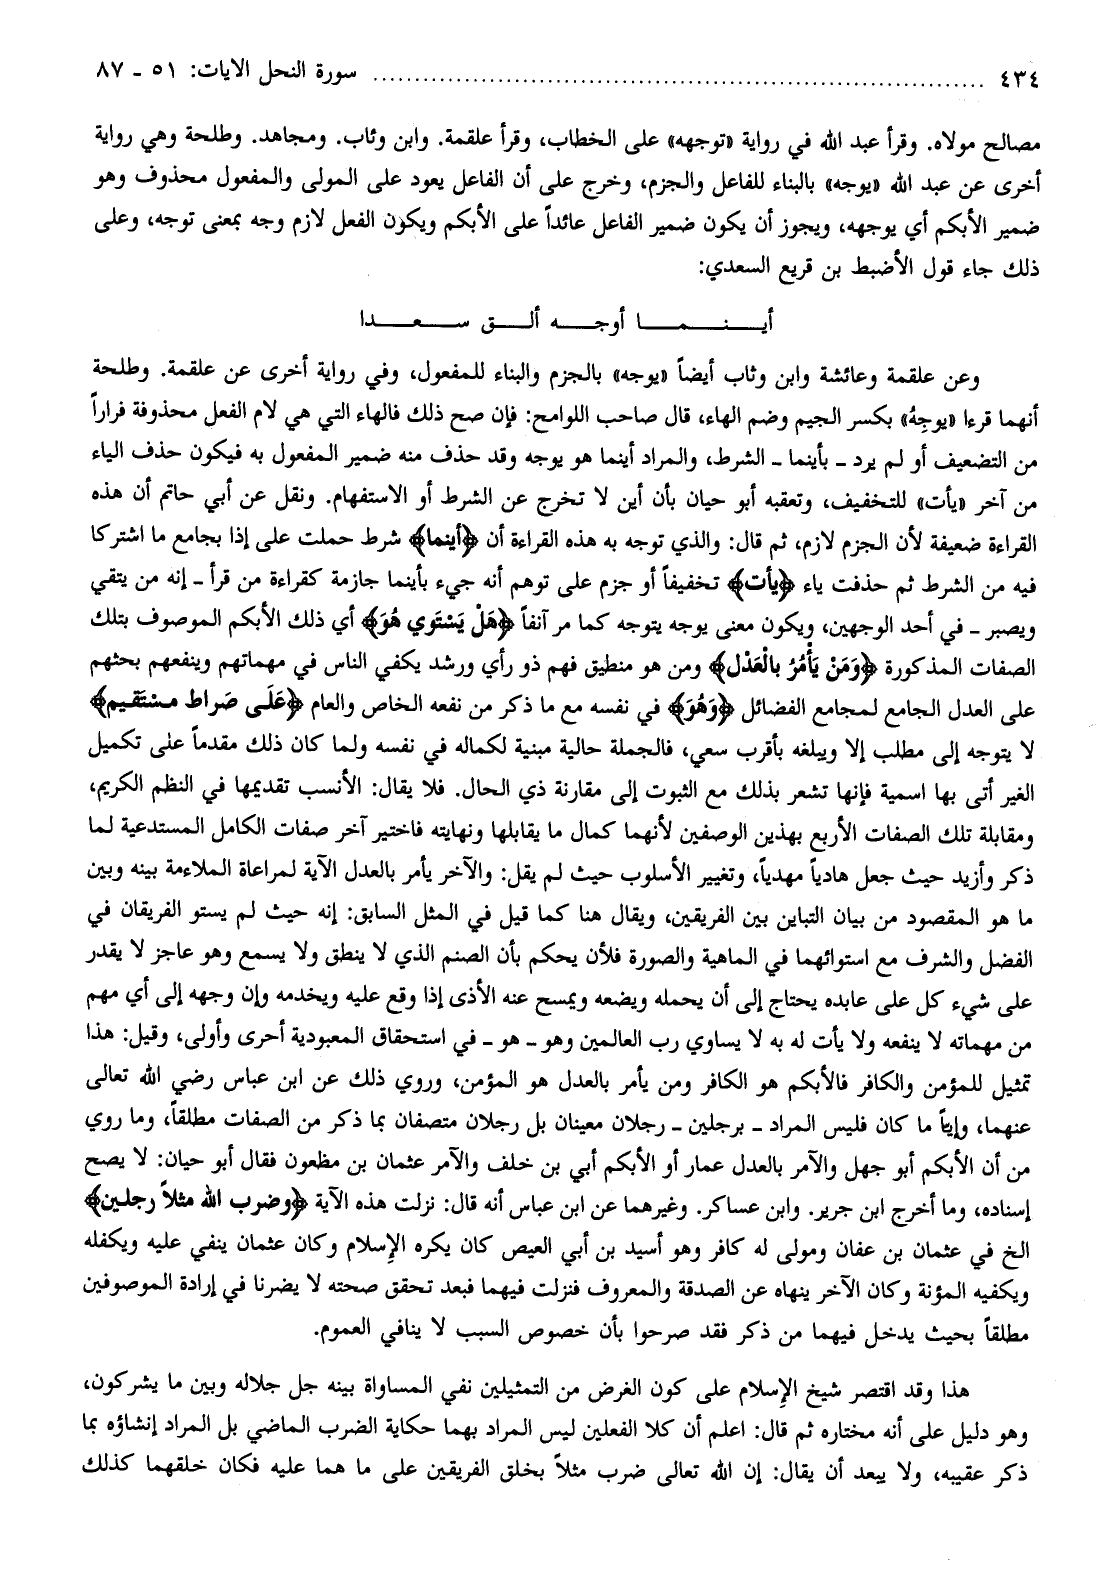 ٤٣٤ ........ سورة النحل الآيات: ٥١ ـ ٨٧
مصالح مولاه. وقرأ عبد الله في رواية «توجهه» على الخطاب، وقرأ علقمة. وابن وثاب. ومجاهد. وطلحة وهي رواية
أخرى عن عبد الله «يوجه» بالبناء للفاعل والجزم، وخرج على أن الفاعل يعود على المولى والمفعول محذوف وهو
ضمير الأبكم أي يوجهه، ويجوز أن يكون ضمير الفاعل عائداً على الأبكم ويكون الفعل لازم وجه بمعنى توجه، وعلى
ذلك جاء قول الأضبط بن قريع السعدي:
أينما أوجه ألق سعدا
وعن علقمة وعائشة وابن وثاب أيضاً «يوجه» بالجزم والبناء للمفعول، وفي رواية أخرى عن علقمة. وطلحة
أنهما قرءا «يوجِهُ» بكسر الجيم وضم الهاء، قال صاحب اللوامح: فإن صح ذلك فالهاء التي هي لام الفعل محذوفة فراراً
من التضعيف أو لم يرد ـ بأينما ـ الشرط، والمراد أينما هو يوجه وقد حذف منه ضمير المفعول به فيكون حذف الياء
من آخر «يأت» للتخفيف، وتعقبه أبو حيان بأن أين لا تخرج عن الشرط أو الاستفهام. ونقل عن أبي حاتم أن هذه
القراءة ضعيفة لأن الجزم لازم، ثم قال: والذي توجه به هذه القراءة أن ﴿أينما﴾ شرط حملت على إذا بجامع ما اشتركا
فيه من الشرط ثم حذفت ياء ﴿يأت﴾ تخفيفاً أو جزم على توهم أنه جيء بأينما جازمة كقراءة من قرأ ـ إنه من يتقي
ويصبر ـ في أحد الوجهين، ويكون معنى يوجه يتوجه كما مر آنفاً ﴿هَلْ يَسْتَوي هُوَ﴾ أي ذلك الأبكم الموصوف بتلك
الصفات المذكورة ﴿وَمَنْ يَأْمُرُ بالْعَدْل﴾ ومن هو منطيق فهم ذو رأي ورشد يكفي الناس في مهماتهم وينفعهم بحثهم
على العدل الجامع لمجامع الفضائل ﴿وَهُوَ﴾ في نفسه مع ما ذكر من نفعه الخاص والعام ﴿عَلَى صَراط مسْتَقيم﴾
لا يتوجه إلى مطلب إلا ويبلغه بأقرب سعي، فالجملة حالية مبنية لكماله في نفسه ولما كان ذلك مقدماً على تكميل
الغير أتى بها اسمية فإنها تشعر بذلك مع الثبوت إلى مقارنة ذي الحال. فلا يقال: الأنسب تقديمها في النظم الكريم،
ومقابلة تلك الصفات الأربع بهذين الوصفين لأنهما كمال ما يقابلها ونهايته فاختير آخر صفات الكامل المستدعية لما
ذكر وأزيد حيث جعل هادياً مهدياً، وتغيير الأسلوب حيث لم يقل: والآخر يأمر بالعدل الآية لمراعاة الملاءمة بينه وبين
ما هو المقصود من بيان التباين بين الفريقين، ويقال هنا كما قيل في المثل السابق: إنه حيث لم يستو الفريقان في
الفضل والشرف مع استوائهما في الماهية والصورة فلأن يحكم بأن الصنم الذي لا ينطق ولا يسمع وهو عاجز لا يقدر
على شيء كل على عابده يحتاج إلى أن يحمله ويضعه ويمسح عنه الأذى إذا وقع عليه ويخدمه وإن وجهه إلى أي مهم
من مهماته لا ينفعه ولا يأت له به لا يساوي رب العالمين وهو ـ هو ـ في استحقاق المعبودية أحرى وأولى، وقيل: هذا
تمثيل للمؤمن والكافر فالأبكم هو الكافر ومن يأمر بالعدل هو المؤمن، وروي ذلك عن ابن عباس رضي الله تعالى
عنهما، وإيّاً ما كان فليس المراد ـ برجلين ـ رجلان معينان بل رجلان متصفان بما ذكر من الصفات مطلقاً، وما روي
من أن الأبكم أبو جهل والآمر بالعدل عمار أو الأبكم أبي بن خلف والآمر عثمان بن مظعون فقال أبو حيان: لا يصح
إسناده، وما أخرج ابن جرير. وابن عساكر. وغيرهما عن ابن عباس أنه قال: نزلت هذه الآية ﴿وضرب الله مثلاً رجلين﴾
الخ في عثمان بن عفان ومولى له كافر وهو أسيد بن أبي العيص كان يكره الإِسلام وكان عثمان ينفي عليه ويكفله
ويكفيه المؤنة وكان الآخر ينهاه عن الصدقة والمعروف فنزلت فيهما فبعد تحقق صحته لا يضرنا في إرادة الموصوفين
مطلقاً بحيث يدخل فيهما من ذكر فقد صرحوا بأن خصوص السبب لا ينافي العموم.
هذا وقد اقتصر شيخ الإِسلام على كون الغرض من التمثيلين نفي المساواة بينه جل جلاله وبين ما يشركون،
وهو دليل على أنه مختاره ثم قال: اعلم أن كلا الفعلين ليس المراد بهما حكاية الضرب الماضي بل المراد إنشاؤه بما
ذكر عقيبه، ولا يبعد أن يقال: إن الله تعالى ضرب مثلاً بخلق الفريقين على ما هما عليه فكان خلقهما كذلك